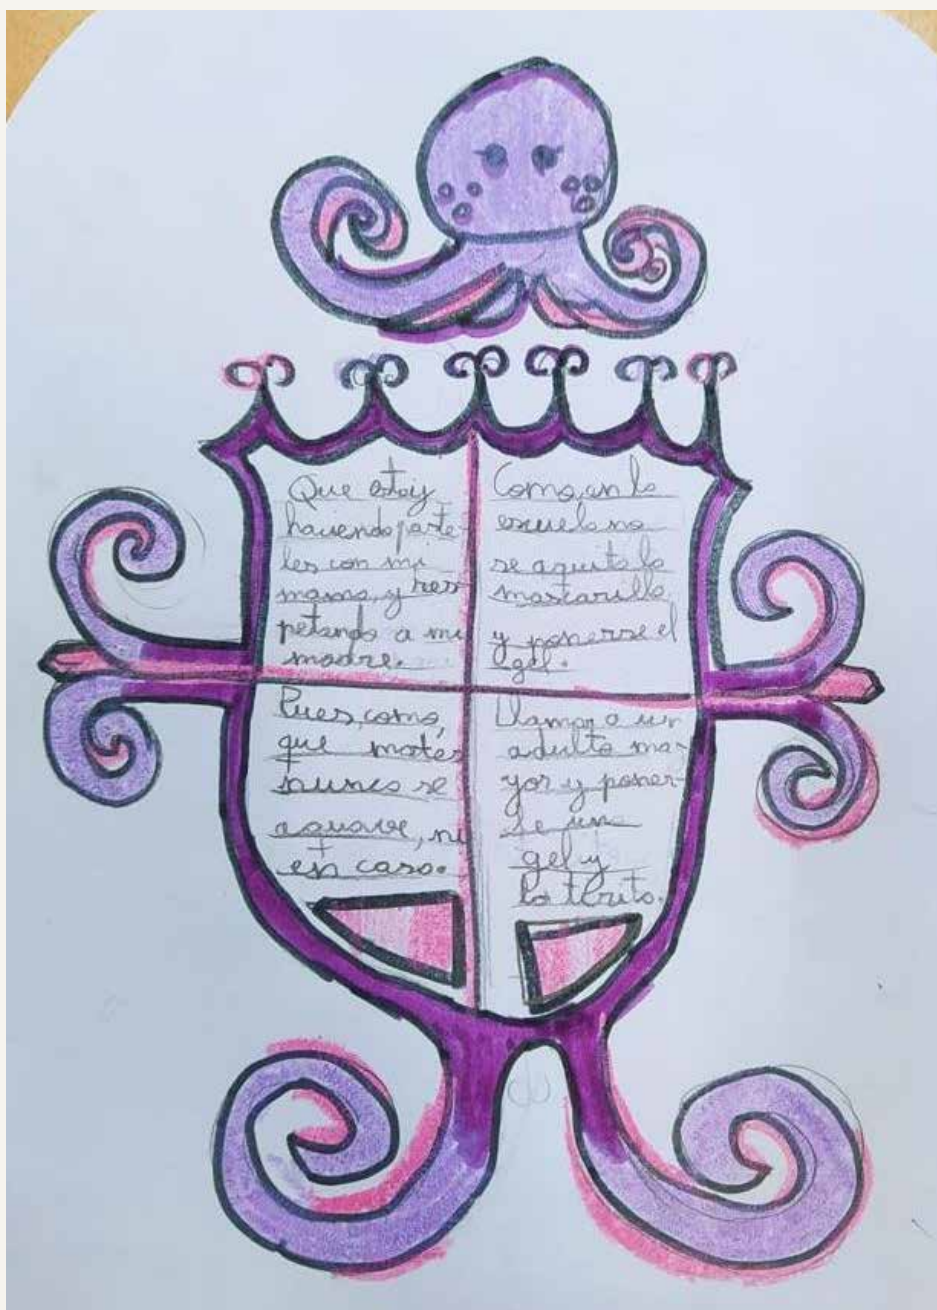 Que estoy
haciendo paste-
les con mi
mama, y res-
petando a mi
madre.
Como, en la
escuela no
se aquita la
mascarilla
y ponerse el
gel.
Pues, como,
que
nunca se
ni
en casa.
Llamar a un
adulto ma-
yor y poner-
se una
gel y